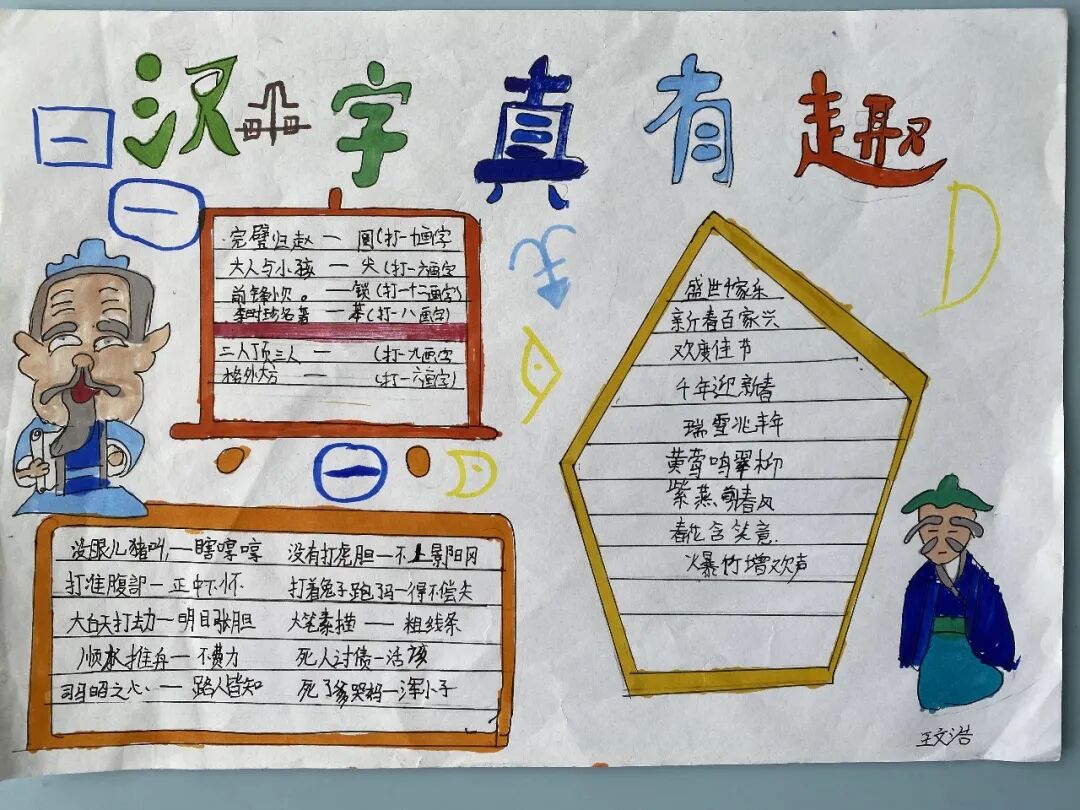 汉字真有趣
完璧归赵 — 圆(打一十画字
大人与小孩 — 尖(打一六画字
前锋小贝。 — 锁(打一十二画字)
李时珍名著 — 苯(打一八画字)
二人顶三人 — (打一九画字
格外大方 — (打一六画字)
没眼儿猪叫 — 瞎哼哼
没有打虎胆 — 不上景阳冈
打准腹部 — 正中下怀
打着兔子跑了马 — 得不偿失
大白天打劫 — 明目张胆
大笔素描 — 粗线条
顺水推舟 — 不费力
死人讨债 — 活该
司马昭之心 — 路人皆知
死了爹哭妈 — 浑小子
盛世千家乐
新春百家兴
欢度佳节
千年迎新春
瑞雪兆丰年
黄莺鸣翠柳
紫燕剪春风
春花含笑意
爆竹增欢声
王文浩